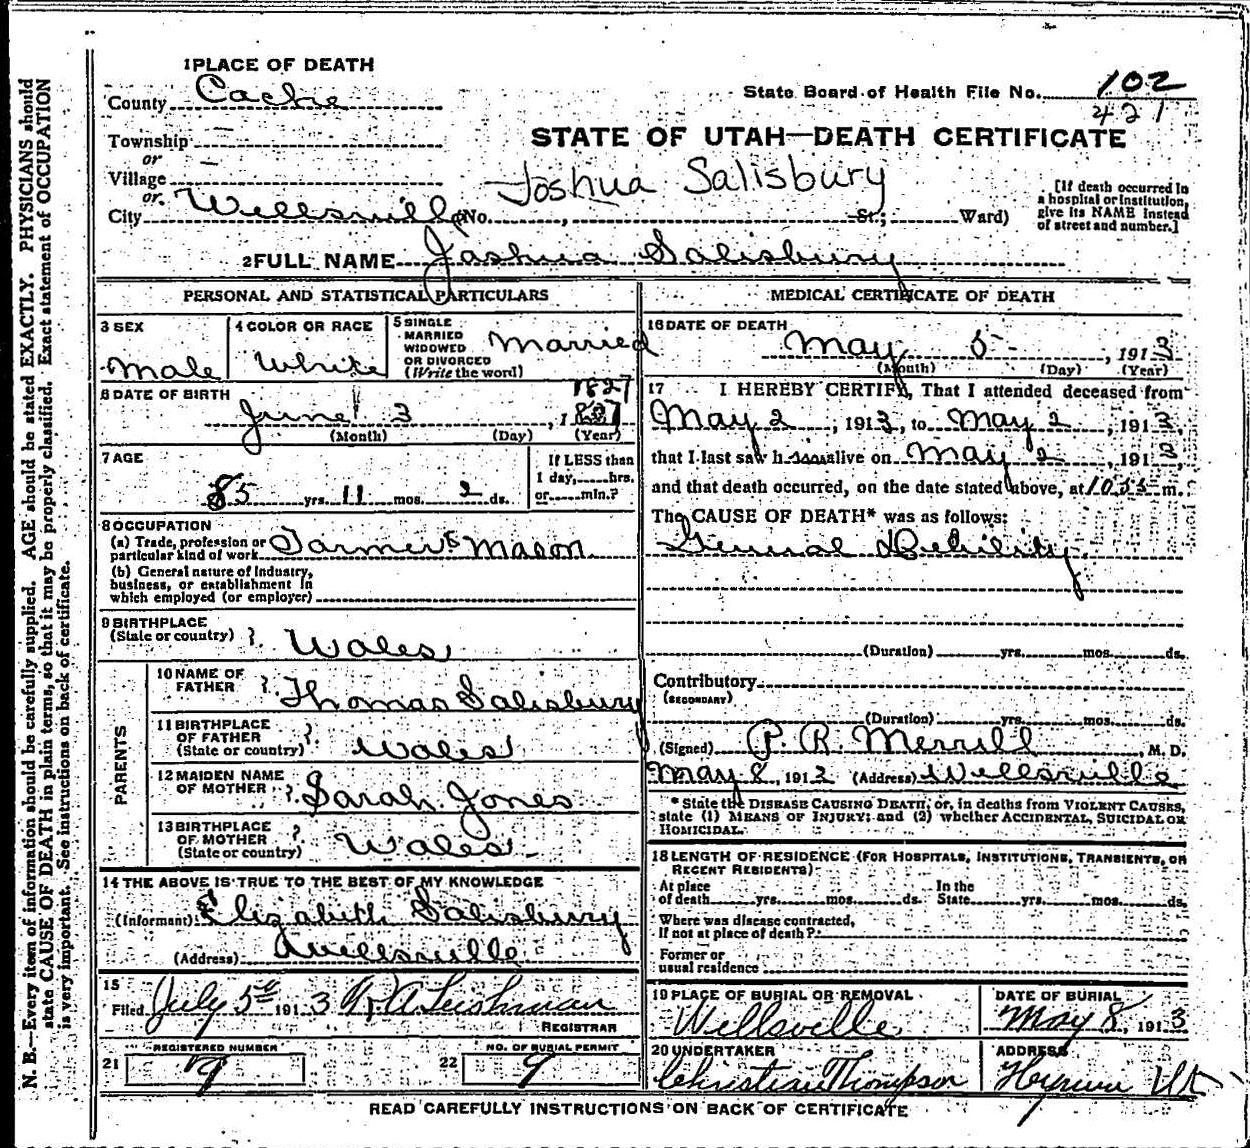 1 PLACE OF DEATH
County Cache
State Board of Health File No. 102
421
Township
or
Village
or
City Wellsville (No. , St.; Ward)
STATE OF UTAH—DEATH CERTIFICATE
Joshua Salisbury
[If death occurred in
a hospital or institution,
give its NAME instead
of street and number.]
2 FULL NAME Joshua Salisbury
PERSONAL AND STATISTICAL PARTICULARS
3 SEX
Male
4 COLOR OR RACE
White
5 SINGLE
MARRIED
WIDOWED
OR DIVORCED
(Write the word)
Married
6 DATE OF BIRTH
1827
June 3, 1827
(Month) (Day) (Year)
7 AGE
85 yrs. 11 mos. 2 ds.
If LESS than
1 day, hrs.
or min.?
8 OCCUPATION
(a) Trade, profession or
particular kind of work Farmer & Mason
(b) General nature of Industry,
business, or establishment in
which employed (or employer)
9 BIRTHPLACE
(State or country) Wales
PARENTS
10 NAME OF
FATHER Thomas Salisbury
11 BIRTHPLACE
OF FATHER
(State or country) Wales
12 MAIDEN NAME
OF MOTHER Sarah Jones
13 BIRTHPLACE
OF MOTHER
(State or country) Wales
14 THE ABOVE IS TRUE TO THE BEST OF MY KNOWLEDGE
(Informant) Elizabeth Salisbury
(Address) Wellsville
15
Filed July 5th 1913 Leishman
REGISTRAR
REGISTERED NUMBER
21 9
NO. OF BURIAL PERMIT
22 9
MEDICAL CERTIFICATE OF DEATH
16 DATE OF DEATH
May 5-, 1913
(Month) (Day) (Year)
17 I HEREBY CERTIFY, That I attended deceased from
May 2, 1913, to May 2, 1913,
that I last saw him alive on May 2, 1913,
and that death occurred, on the date stated above, at 1055 m.
The CAUSE OF DEATH* was as follows:
General Debility
(Duration) yrs. mos. ds.
Contributory
(SECONDARY)
(Duration) yrs. mos. ds.
(Signed) P. R. Merrill, M. D.
May 8, 1913 (Address) Wellsville
* State the DISEASE CAUSING DEATH, or, in deaths from VIOLENT CAUSES,
state (1) MEANS OF INJURY; and (2) whether ACCIDENTAL, SUICIDAL OR
HOMICIDAL.
18 LENGTH OF RESIDENCE (FOR HOSPITALS, INSTITUTIONS, TRANSIENTS, OR
RECENT RESIDENTS)
At place
of death yrs. mos. ds.
In the
State yrs. mos. ds.
Where was disease contracted,
If not at place of death?
Former or
usual residence
19 PLACE OF BURIAL OR REMOVAL
Wellsville
DATE OF BURIAL
May 8, 1913
20 UNDERTAKER
Christian Thompson
ADDRESS
Hyrum Ut
READ CAREFULLY INSTRUCTIONS ON BACK OF CERTIFICATE
N. B.—Every item of information should be carefully supplied. AGE should be stated EXACTLY. PHYSICIANS should
state CAUSE OF DEATH in plain terms, so that it may be properly classified. Exact statement of OCCUPATION
is very important. See instructions on back of certificate.